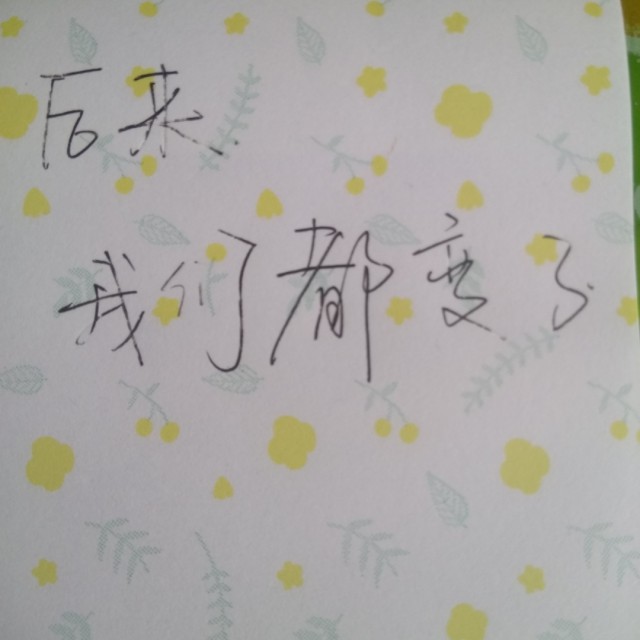 后来
我们都变了